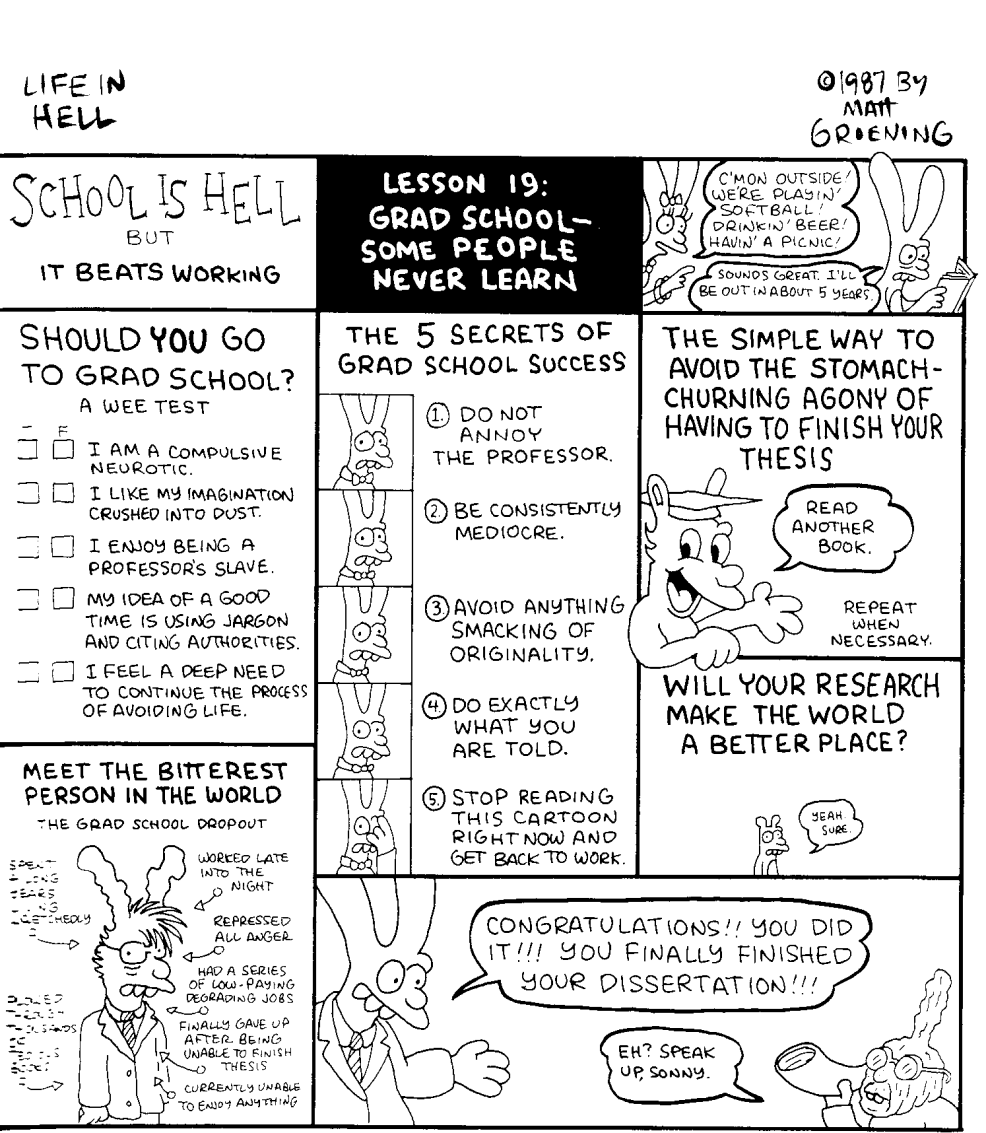 LIFE IN
HELL
©1987 BY
MATT
GROENING
SCHOOL IS HELL
BUT
IT BEATS WORKING
LESSON 19:
GRAD SCHOOL—
SOME PEOPLE
NEVER LEARN
C'MON OUTSIDE!
WE'RE PLAYIN'
SOFTBALL!
DRINKIN' BEER!
HAVIN' A PICNIC!
SOUNDS GREAT. I'LL
BE OUT IN ABOUT 5 YEARS.
SHOULD YOU GO
TO GRAD SCHOOL?
A WEE TEST
F
I AM A COMPULSIVE
NEUROTIC.
I LIKE MY IMAGINATION
CRUSHED INTO DUST.
I ENJOY BEING A
PROFESSOR'S SLAVE.
MY IDEA OF A GOOD
TIME IS USING JARGON
AND CITING AUTHORITIES.
I FEEL A DEEP NEED
TO CONTINUE THE PROCESS
OF AVOIDING LIFE.
THE 5 SECRETS OF
GRAD SCHOOL SUCCESS
1. DO NOT
ANNOY
THE PROFESSOR.
2. BE CONSISTENTLY
MEDIOCRE.
3. AVOID ANYTHING
SMACKING OF
ORIGINALITY.
4. DO EXACTLY
WHAT YOU
ARE TOLD.
5. STOP READING
THIS CARTOON
RIGHT NOW AND
GET BACK TO WORK.
THE SIMPLE WAY TO
AVOID THE STOMACH-
CHURNING AGONY OF
HAVING TO FINISH YOUR
THESIS
READ
ANOTHER
BOOK.
REPEAT
WHEN
NECESSARY.
WILL YOUR RESEARCH
MAKE THE WORLD
A BETTER PLACE?
YEAH.
SURE.
MEET THE BITTEREST
PERSON IN THE WORLD
THE GRAD SCHOOL DROPOUT
SPENT
LONG
YEARS
WORKED LATE
INTO THE
NIGHT
REPRESSED
ALL ANGER
HAD A SERIES
OF LOW-PAYING
DEGRADING JOBS
FINALLY GAVE UP
AFTER BEING
UNABLE TO FINISH
THESIS
CURRENTLY UNABLE
TO ENJOY ANYTHING
THOUSANDS
CONGRATULATIONS!! YOU DID
IT!!! YOU FINALLY FINISHED
YOUR DISSERTATION!!!
EH? SPEAK
UP, SONNY.